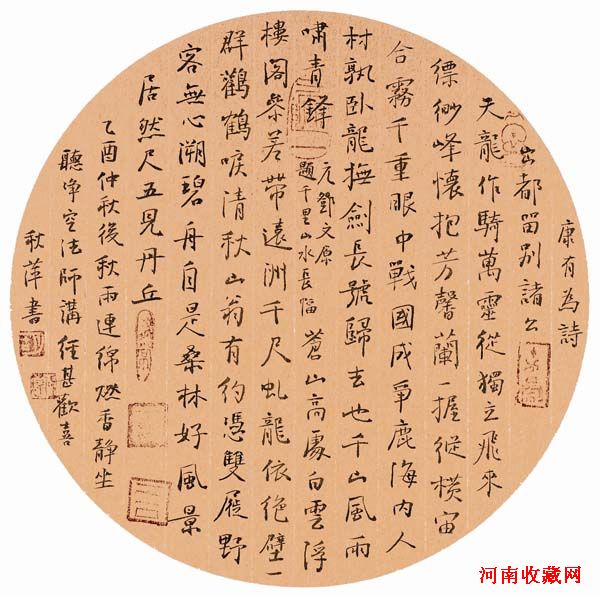 康有為詩
出都留別諸公
天龍作騎萬靈從獨立飛來
縹緲峰懷抱芳馨蘭一握縱橫宙
合霧千重眼中戰國成爭鹿海內人
材孰卧龍撫劍長號歸去也千山風雨
嘯青鋒
元鄧文原
題千里山水長幅
蒼山高處白雲浮
樓閣參差帶遠洲千尺虬龍依絕壁一
群鸛鶴唳清秋山翁有約憑雙屐野
客無心溯碧舟自是桑林好風景
居然尺五見丹丘
乙酉仲秋後秋雨連綿燃香靜坐
聽淨空法師講經甚歡喜
秋萍書
河南收藏网